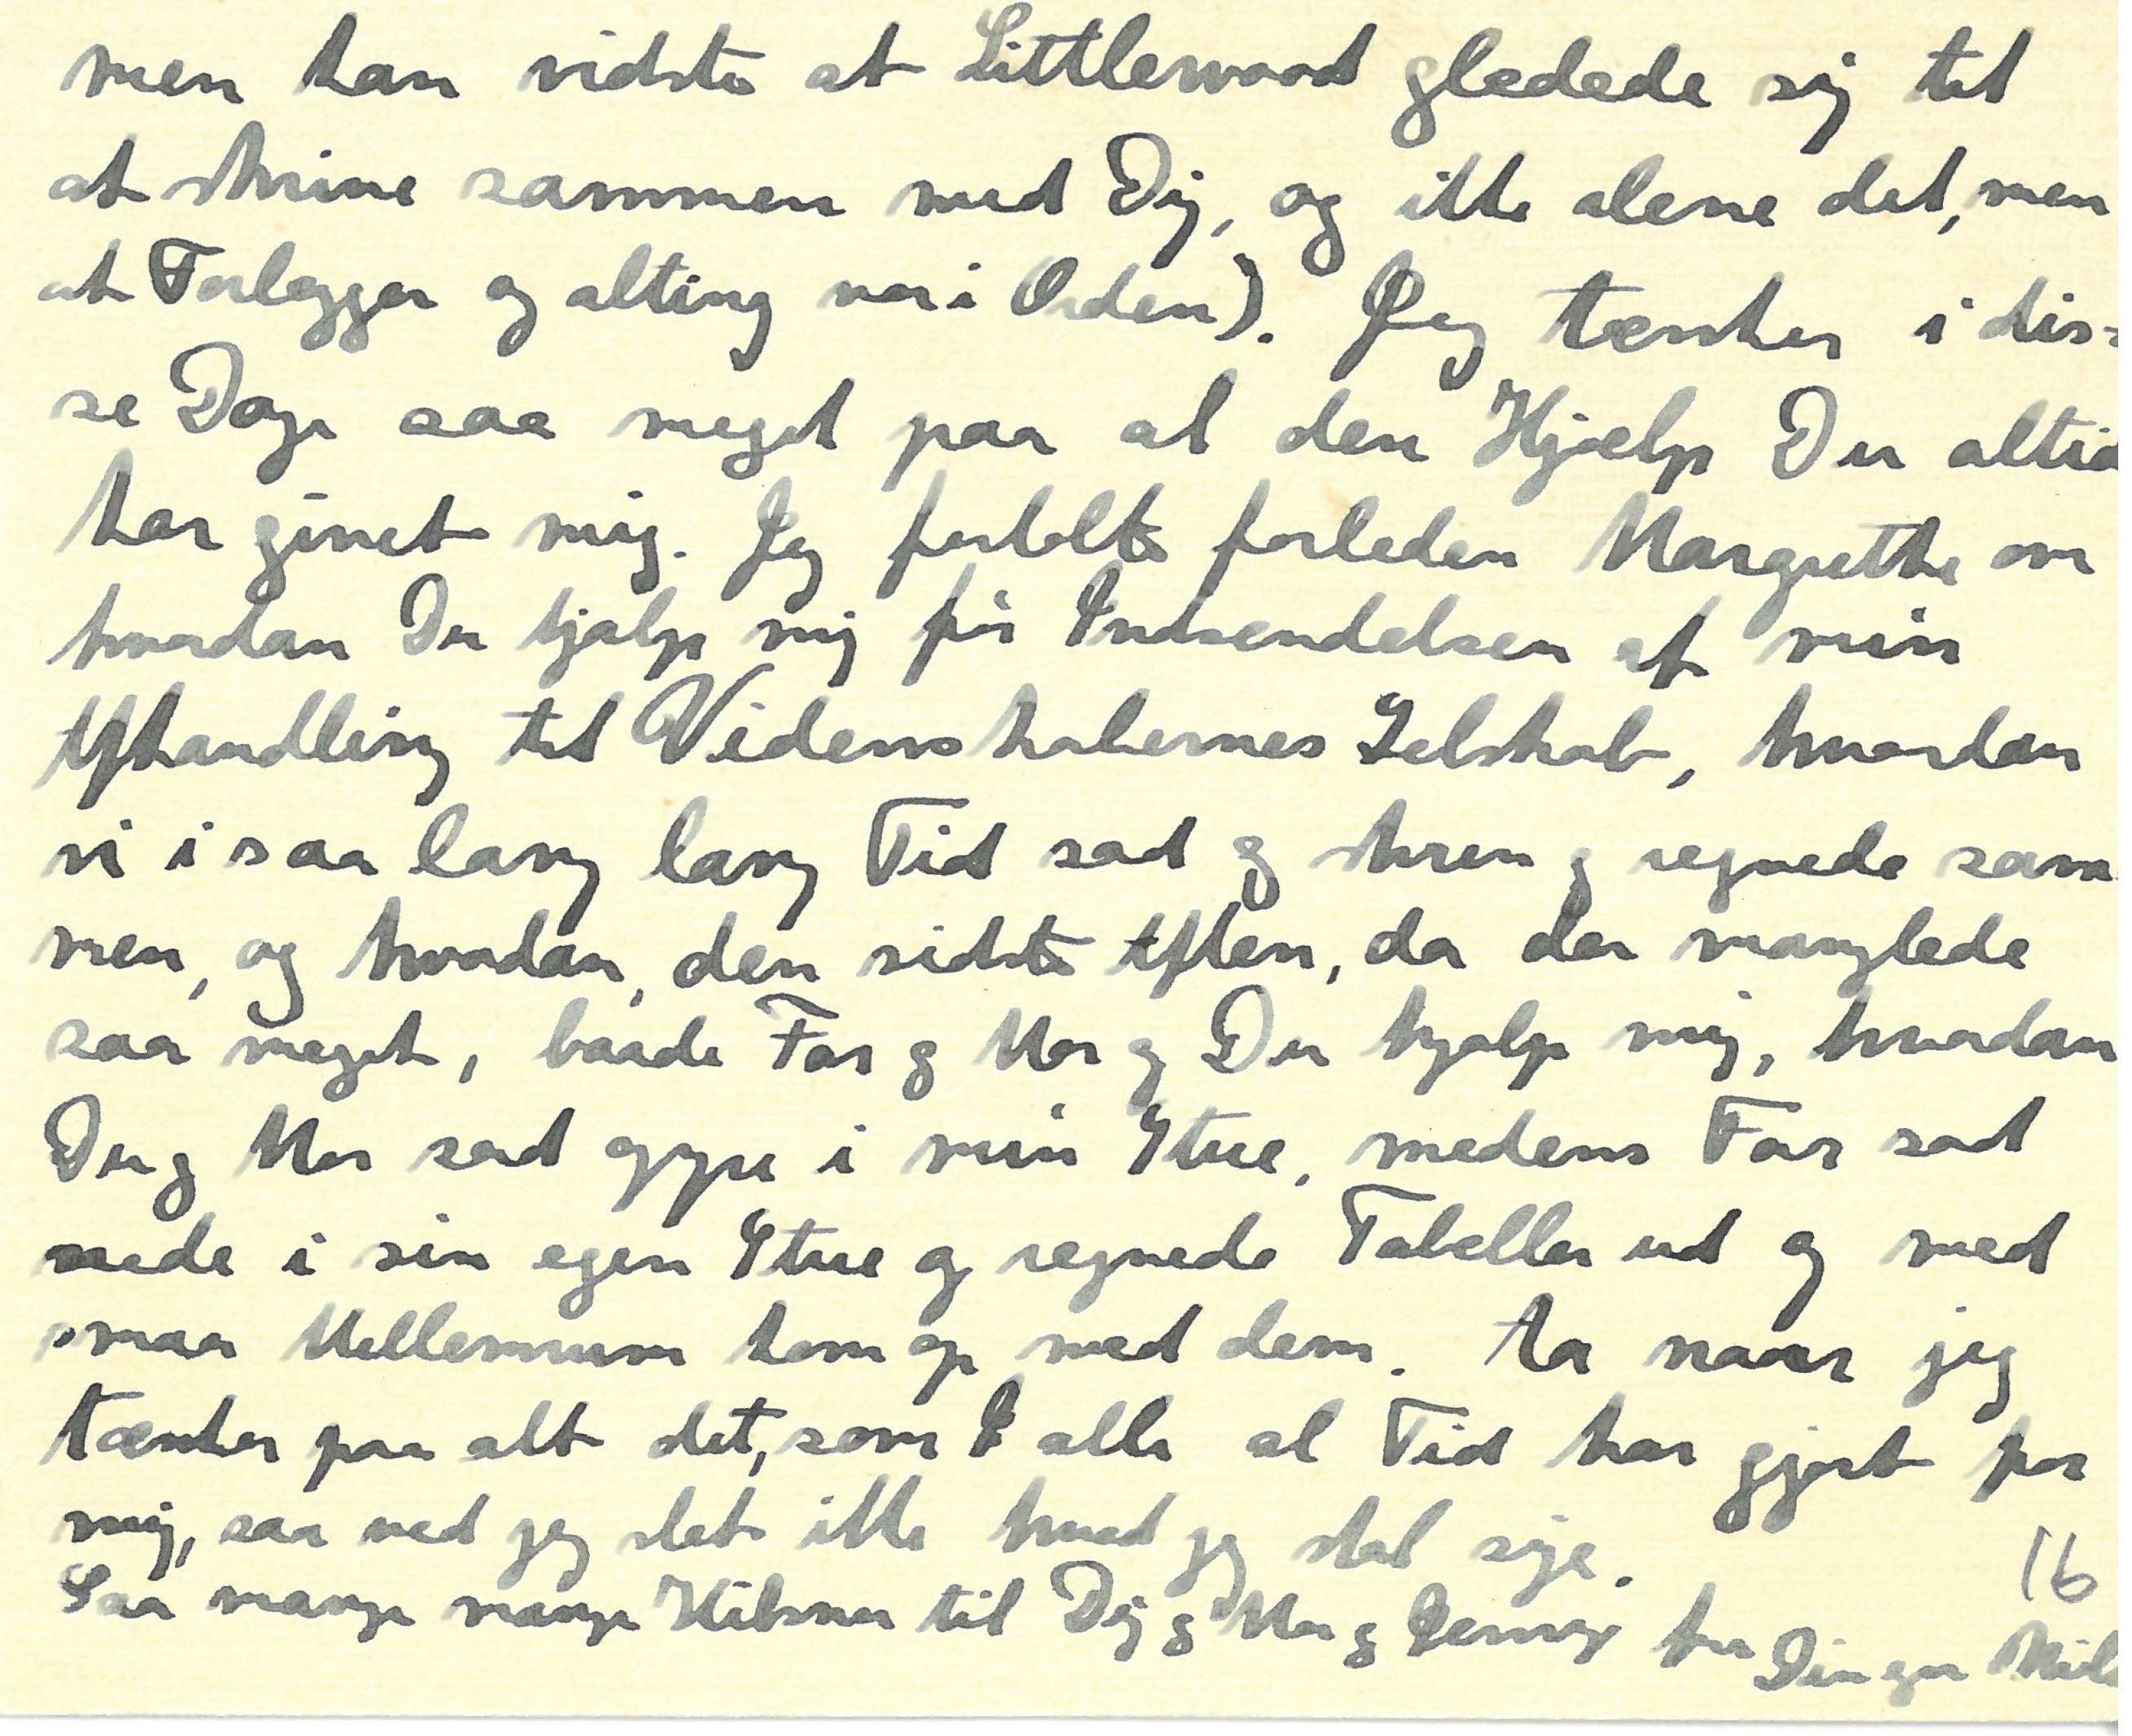 men han vidste at Littlewood glædede sig til
at skrive sammen med Dig, og ikke alene det, men
at Forlægger og alting var i Orden). Jeg tænker i dis=
se Dage saa meget paa al den Hjælp Du altid
har givet mig. Jeg fortalte forleden Margrethe om
hvordan Du hjalp mig før Indsendelsen af min
Afhandling til Videnskabernes Selskab, hvordan
vi i saa lang lang Tid sad og skrev og regnede sam
men, og hvordan, den sidste Aften, da der manglede
saa meget, baade Far og Mor og Du hjalp mig, hvordan
Du og Mor sad oppe i min Stue, medens Far sad
nede i sin egen Stue og regnede Tabeller ud og med
smaa Mellemrum kom op med dem. Aa naar jeg
tænker paa alt det, som I alle al Tid har gjort for
mig, saa ved jeg slet ikke hvad jeg skal sige.
16
Saa mange mange Hilsner til Dig og Mor og Jenny fra Din egen Niels